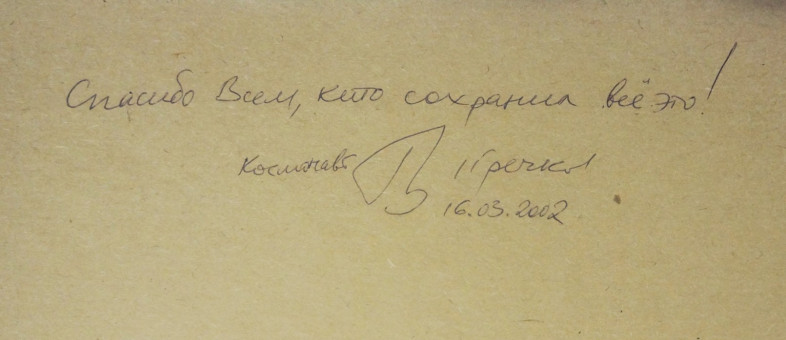 Спасибо Всем, кто сохранил всё это!
Космонавт Гречко
16.03.2002